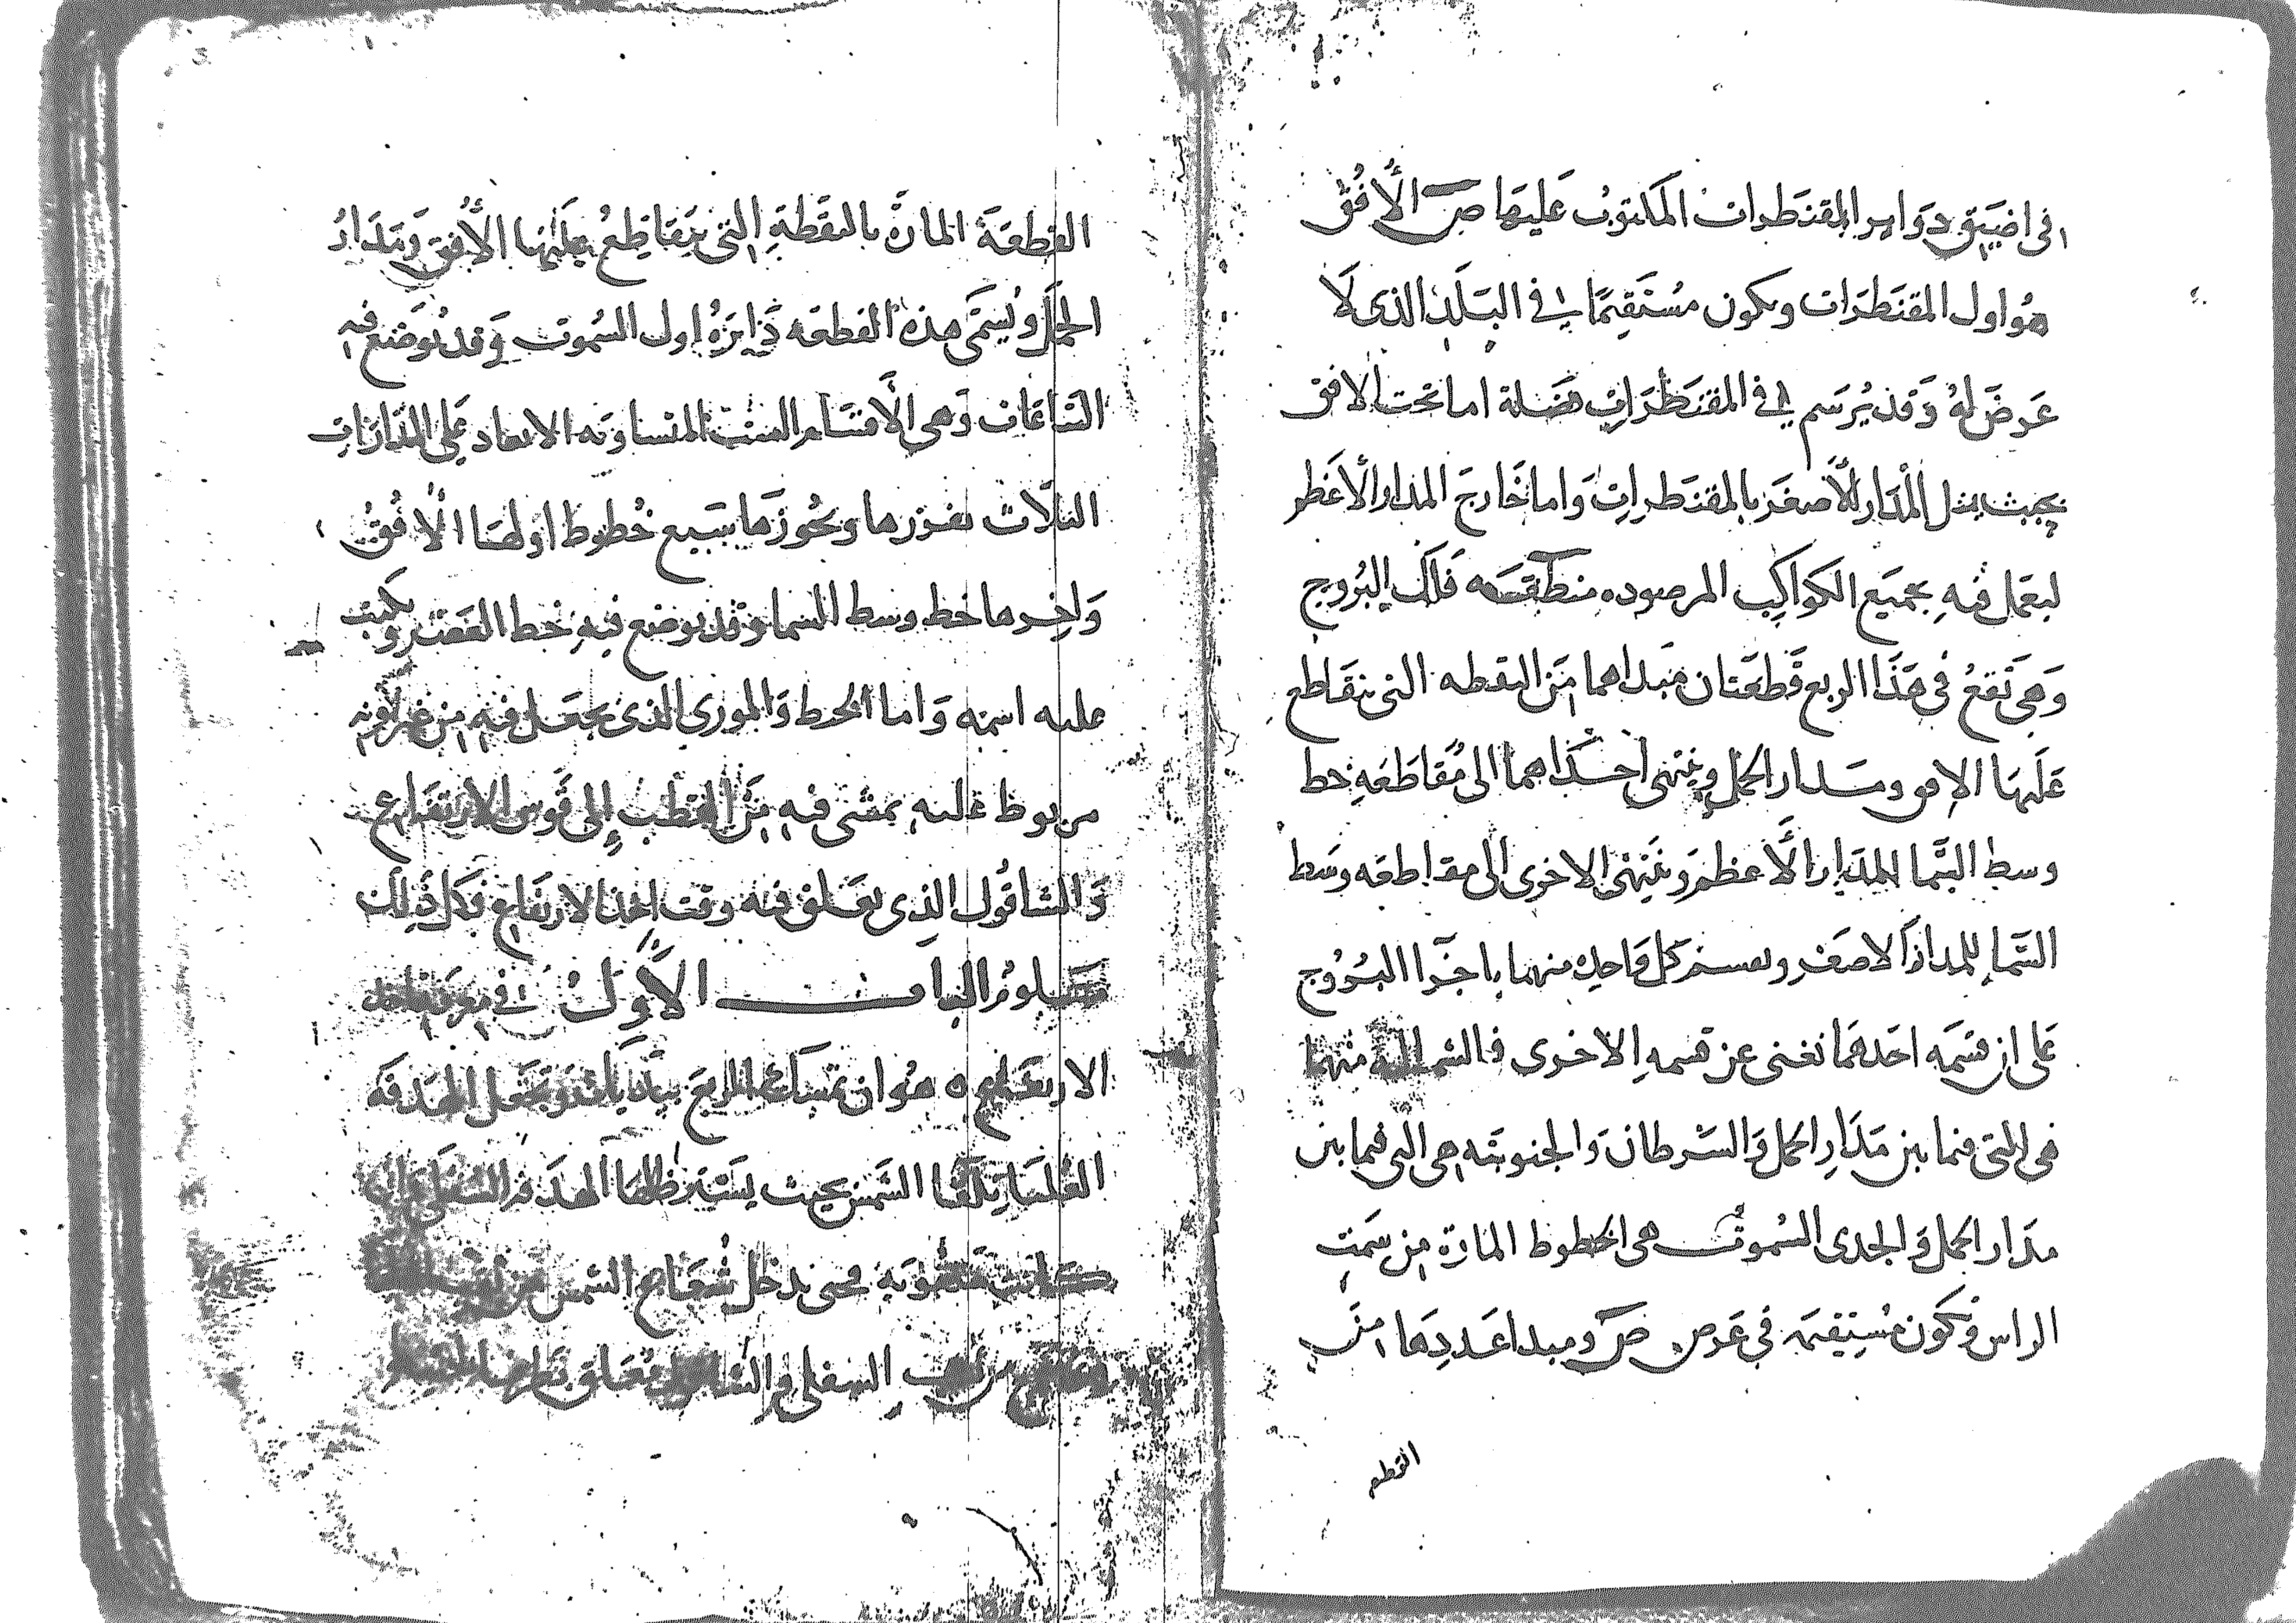 في اضيق دوَاير المقنطرات المكتوبُ عَليهَا صَ الأُفُق
هُوَ اول المقنطَرَات ويكون مُسْتَقِيمًا في البَلَدِ الذى لَا
عَرضَ لهُ وَقد يُرسَم في المقنطَرَاتِ فضلة اما تحت الافق
بحيث يمثل المْدَار الأصغَر بالمقنطراتِ وَاما خَارجَ المدار الأعَظم
ليعمَل فيهِ بجميَع الكواكِب المرصوده منطَقة فَلَك البُروج
وَهى تَقعُ فى هَذا الربع قَطعَتان مَبداهما مَن النقطه التى يتقَاطع
عَليهَا الافق ومَدار الحمل وينتهى احدَاهما الى مُقَاطَعَهِ خط
وسط السَّما للمَدار الأعظم وَينَتهى الاخرى الى مقاطعه وسَط
السَّما للمدار الاصغَر ويقسم كل وَاحدٍ منهما باجزا البُروج
عَلى ان قسمَه احَدهمَا تغنى عن قسمهِ الاخرى فالشماليه منهما
هى التى فيما بين مَدَارِ الحمل وَالسَّرطان وَالجنوبيَه هى التى فيما بين
مدَار الحمل وَالجدى السُموت هى الخطوط المارة من سَمتِ
الراس وَتكون مُستقيمَه فى عَرض صَ ومبدا عَددِهَا مَن
القطع
القطعَة المارَّة بالنقطةِ التى يتَقاطعُ عَليهَا الأُفق وَمَدَارُ
الحمَل ويُسمَّى هذه القطعَه دَايرَةُ اول السُموت وَقد يُوضَع فيه
السَّاعَات وَهى الأقسَام الست المتساوَيه الابعاد عَلى المَدَارَاتِ
الثلاث يفرزها ويحُوزهَا سَبع خُطوط اولهَا الأفُقُ
وَاخرها خط وسط السَما وَقد يوضع فيهِ خط العَصْر وَيكتب
عليه اسمه وَاما الخيط وَالمورى الذى يجعَل فيه من غير لونه
مربوط عليه يمشى فيه مَن القطب إلى قَوس الارتفَاع
وَالشاقُول الذِى يعَلق فيه وقت اخذ الارتفاع فَكل ذَلِك
مَعلومُ الباب الأوَلُ في مَعرفة اخذ
الارتفاع ٥ هُوَ ان تمسَك الربعَ بيَديك وَتجعَل الهَدفَه
العُليَا تلقَا الشَمس بحيث يَستَتر ظلهَا الهدَفه السُفلى ان
كانت مَثقُوبَه حتى يدخل شُعَاع الشمس من
السفلى وَالشاقول مُعَلق